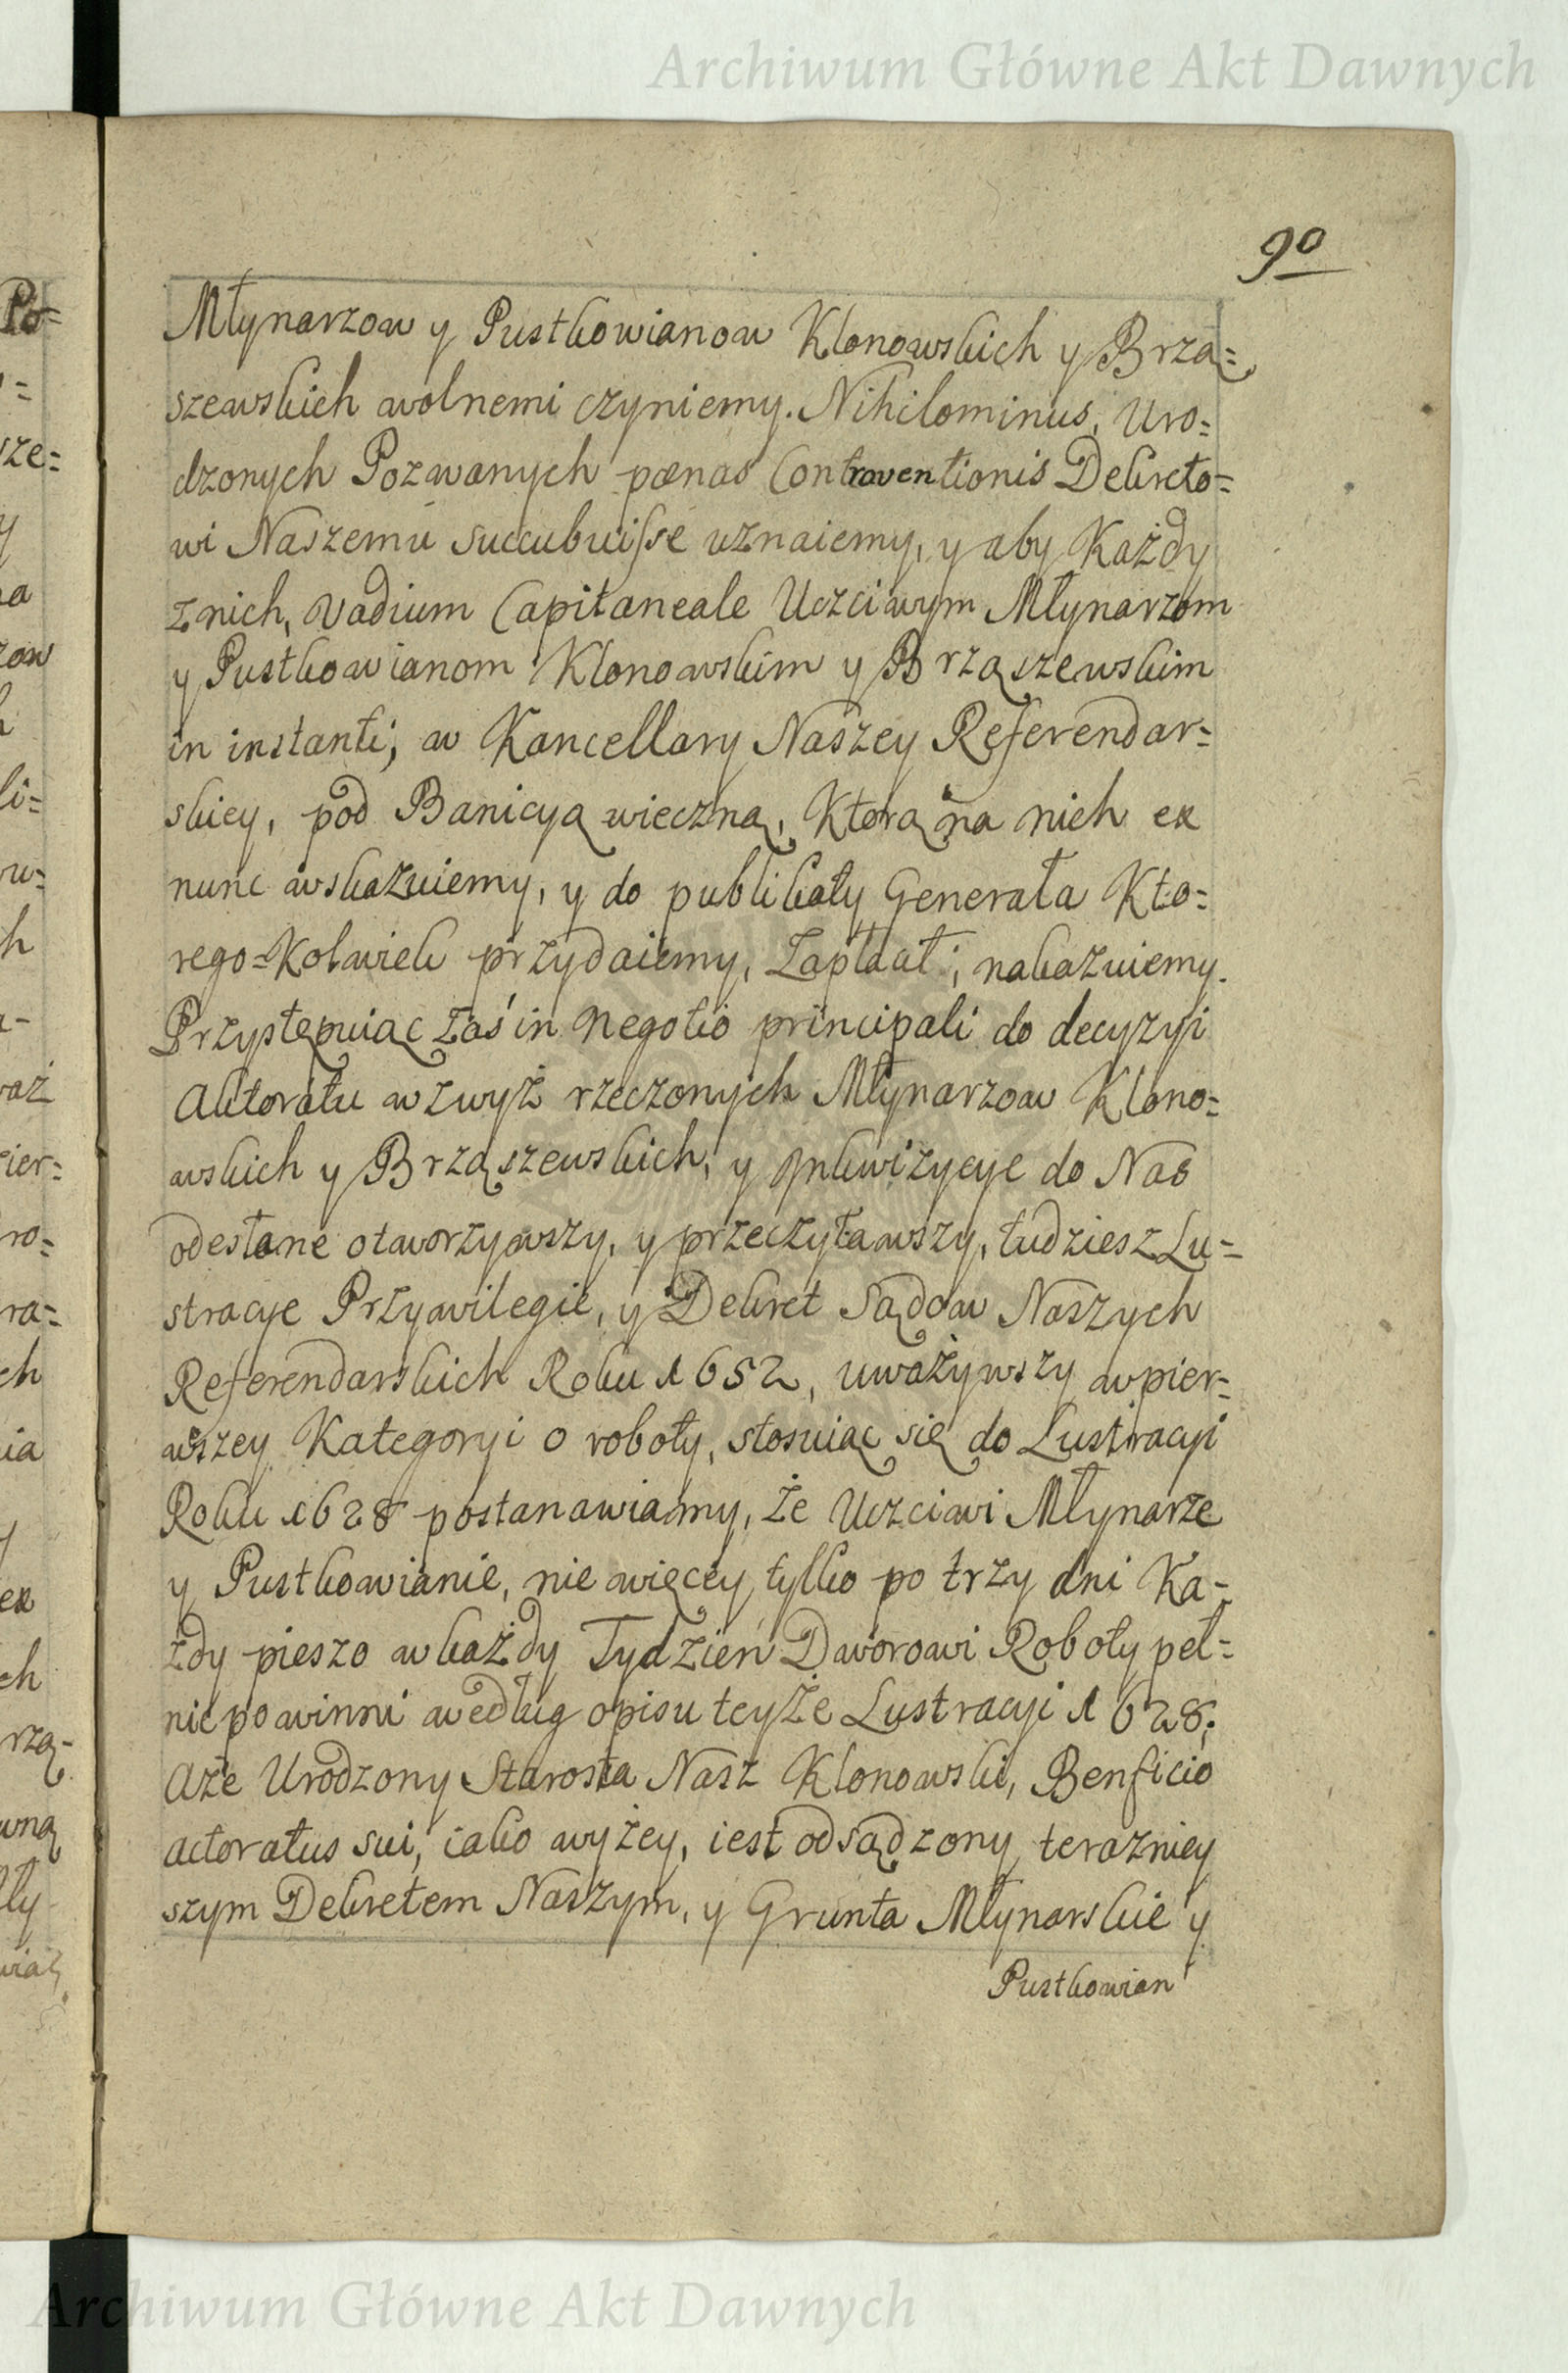 Archiwum Główne Akt Dawnych
90
Młynarzow y Pustkowianow Klonowskich y Brzą=
szewskich wolnemi czyniemy. Nihilominus, Uro=
dzonych Pozwanych pœnas Contraventionis Dekreto=
wi Naszemu succubuisse uznaiemy, y aby Każdy
z nich, Vadium Capitaneale Uczciwym Młynarzom
y Pustkowianom Klonowskim y Brząszewskim
in instanti, w Kancellary Naszey Referendar=
skiey, pod Banicyą wieczną, Ktorą na nich ex
nunc wskazuiemy, y do publikaty Generała Kto=
rego=Kolwiek przydaiemy, Zapłacił; nakazuiemy.
Przystępuiąc zaś in Negotio principali do decyzyi
Aktoratu wzwyż rzeczonych Młynarzow Klono=
wskich y Brząszewskich, y Inkwizycye do Nas
odesłane otworzywszy, y przeczytawszy, tudziesz Lu=
stracye Przywilegie, y Dekret Sądow Naszych
Referendarskich Roku 1652, uważywszy w pier=
wszey Kategoryi o roboty, stosuiąc się do Lustracyi
Roku 1628 postanawiamy, że Uczciwi Młynarze
y Pustkowianie, nie więcey tylko po trzy dni Ka=
żdy pieszo w każdy Tydzień Dworowi Roboty peł=
nic powinni według opisu teyże Lustracyi 1628;
Aże Urodzony Starosta Nasz Klonowski, Benficio
actoratus sui, iako wyżey, iest odsądzony teraźniey
szym Dekretem Naszym, y Grunta Młynarskie y
Pustkowian
Archiwum Główne Akt Dawnych